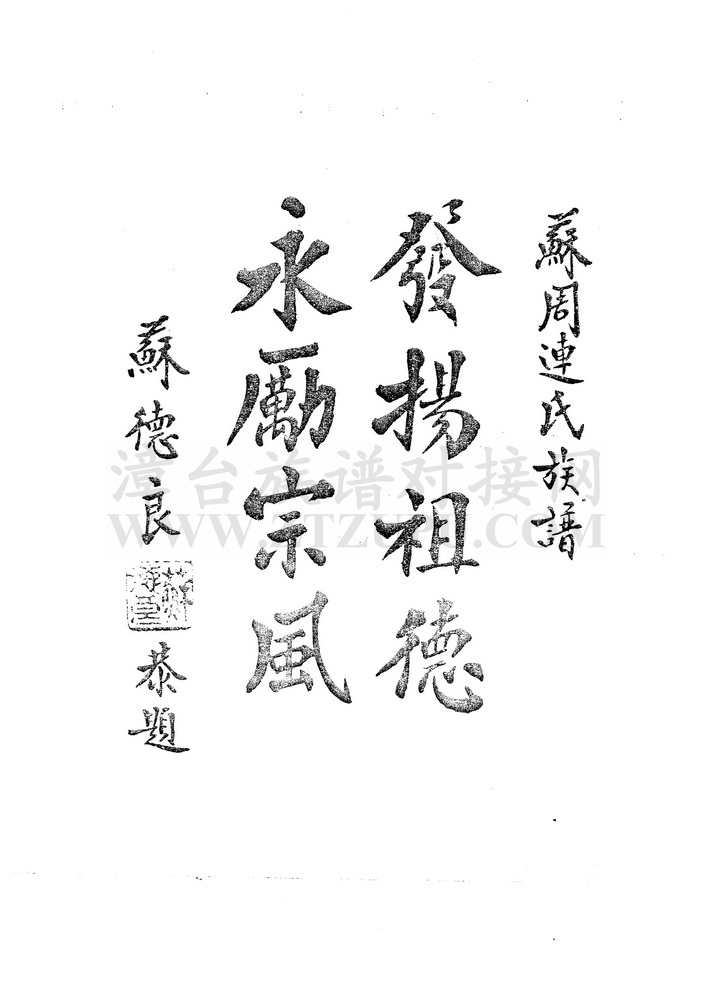 蘇周連氏族譜
發揚祖德
永勵宗風
蘇德良
恭題
漳台族谱对接网